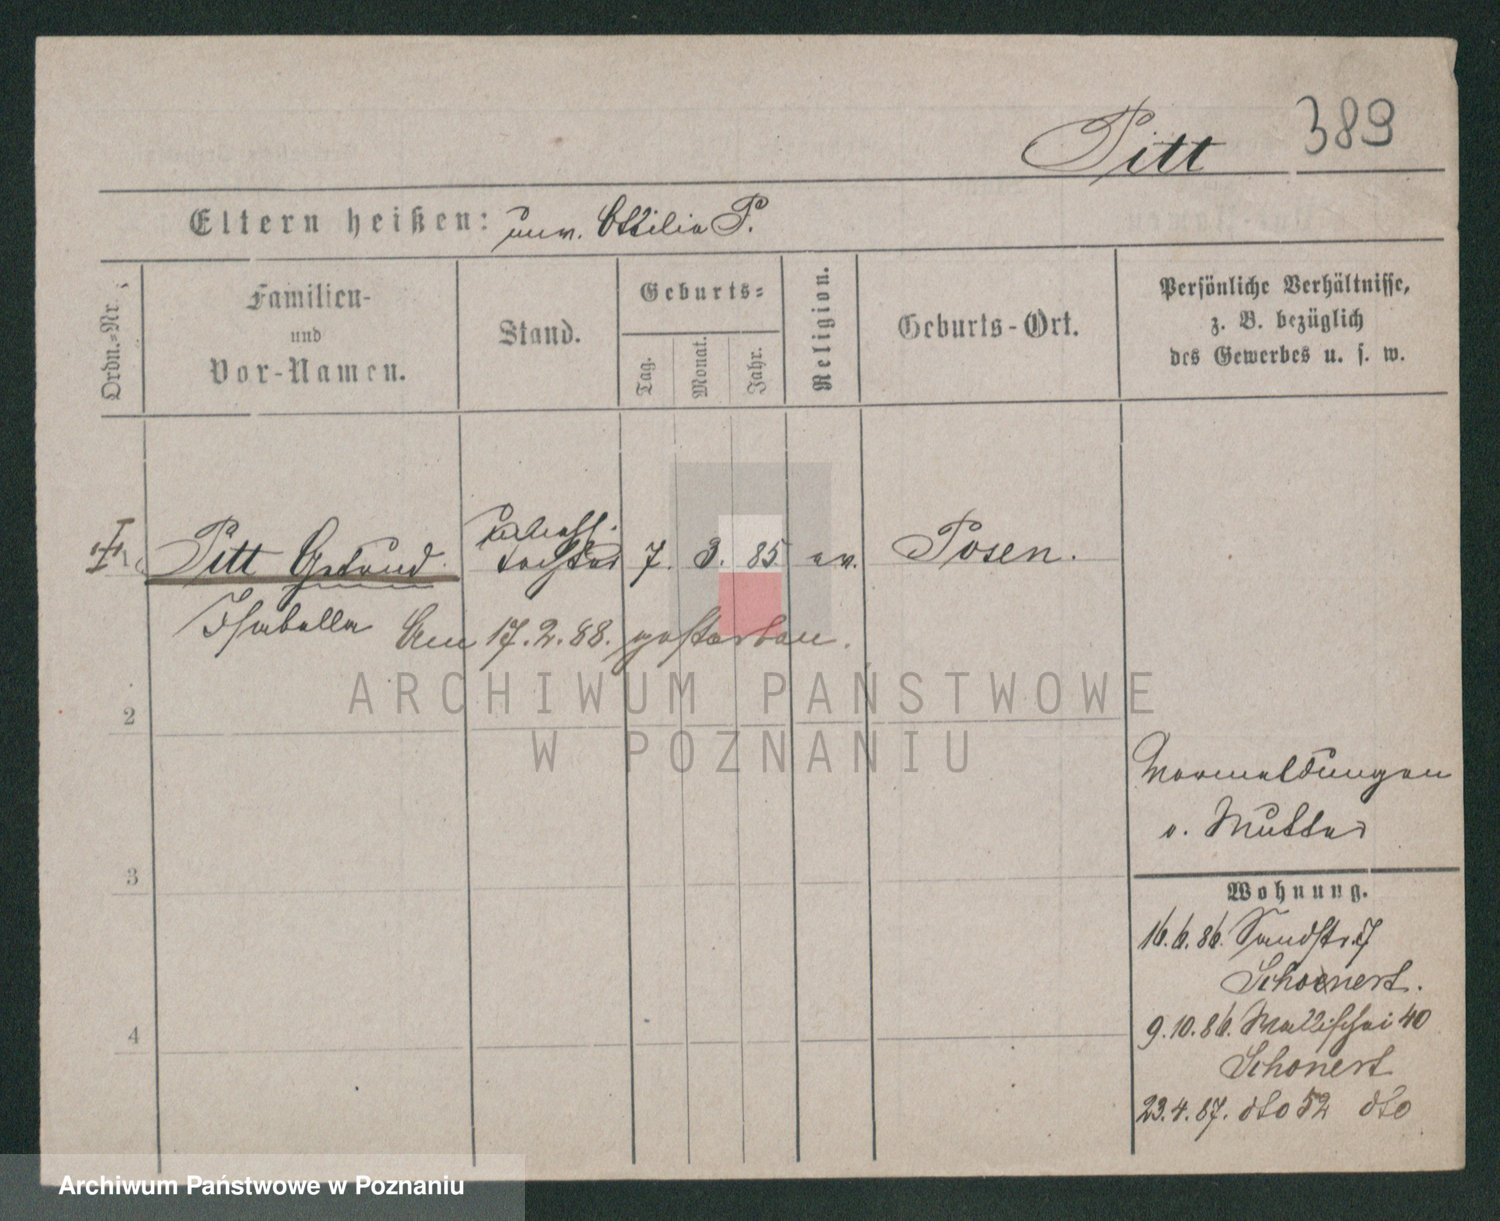 Pitt 389
Eltern heißen: unv. Ottilie P.
Ordn.=Nr.
Familien-
und
Vor-Namen.
Stand.
Geburts=
Tag.
Monat.
Jahr.
Religion.
Geburts-Ort.
Persönliche Verhältnisse,
z. B. bezüglich
des Gewerbes u. s. w.
Pitt Gertrud tochter 7. 3. 85 ev. Posen.
Isabella Am 17.2.88. gestorben.
ARCHIWUM PAŃSTWOWE
W POZNANIU
2
3
4
Vormeldungen
v. Mutter
Wohnung.
16.6.86. Sandstr. 7
Schoenert.
9.10.86. Wallischei 40
Schonert
23.4.87. dto 52 dto
Archiwum Państwowe w Poznaniu